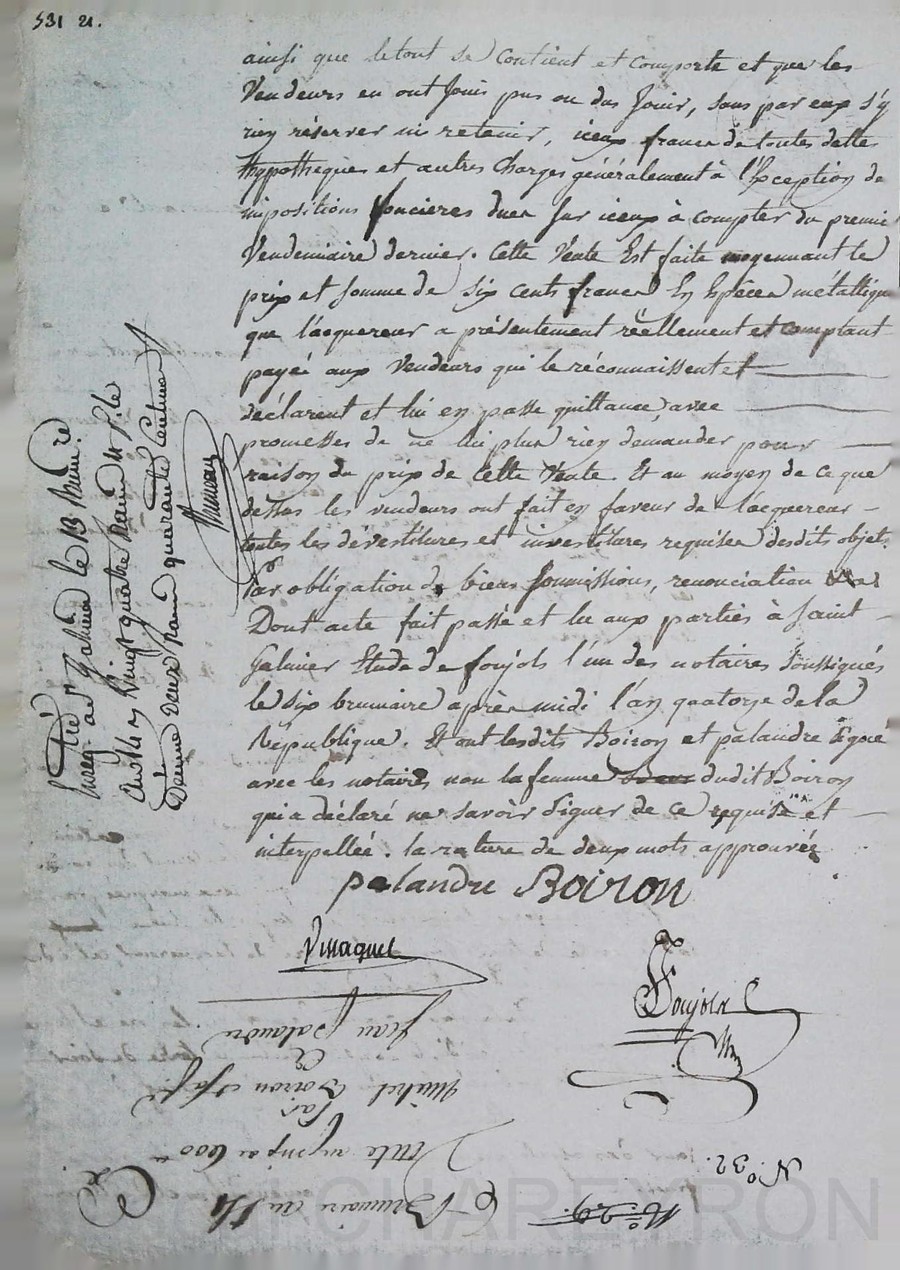 531 21.
ainsi que le tout se Contient et Comporte et que les
Vendeurs en ont Joui pus ou dus Jouir, sans par eux s'y
rien réserver ni retenir, iceux francs de toutes dettes
hypothèques et autres Charges généralement à l'Exception des
impositions foncieres dues sur iceux à compter du premier
Vendemiaire dernier. Cette Vente Est faite moyennant le
prix et somme de six cents francs En Espèces métallique
que l'acquereur a présentement réellement et comptant
payée aux Vendeurs qui le réconnaissent et
déclarent et lui en passe quittance, avec
promesses de ne lui plus rien demander pour
raison du prix de Cette Vente. Et au moyen de ce que
dessus les vendeurs ont fait en faveur de l'acquereur
toutes les dévestitures et investitures requises desdits objets.
Par obligation de biens soumissions, renonciation
Dont acte fait passé et lu aux parties à Saint
Galmier Etude de foujols l'un des notaires soussignés
le six brumaire après midi l'an quatorze de la
République. Et ont lesdits Boiron et palandre signé
avec les notaires non la femme dudit Boiron
qui a déclaré ne savoir signer de ce requise et
interpellée. la rature de deux mots approuvée
palandre Boiron
foujols
Enreg. à St Galmier le 13 Brumaire
an 14 vingt quatre francs
dixme deux francs quarante Centimes
Jean Palandre
Michel Boiron et sa fe
Par
Vente au prix de 600
6 Brumaire an 14
N.º 32.
N.º 29.
CHAREYRON